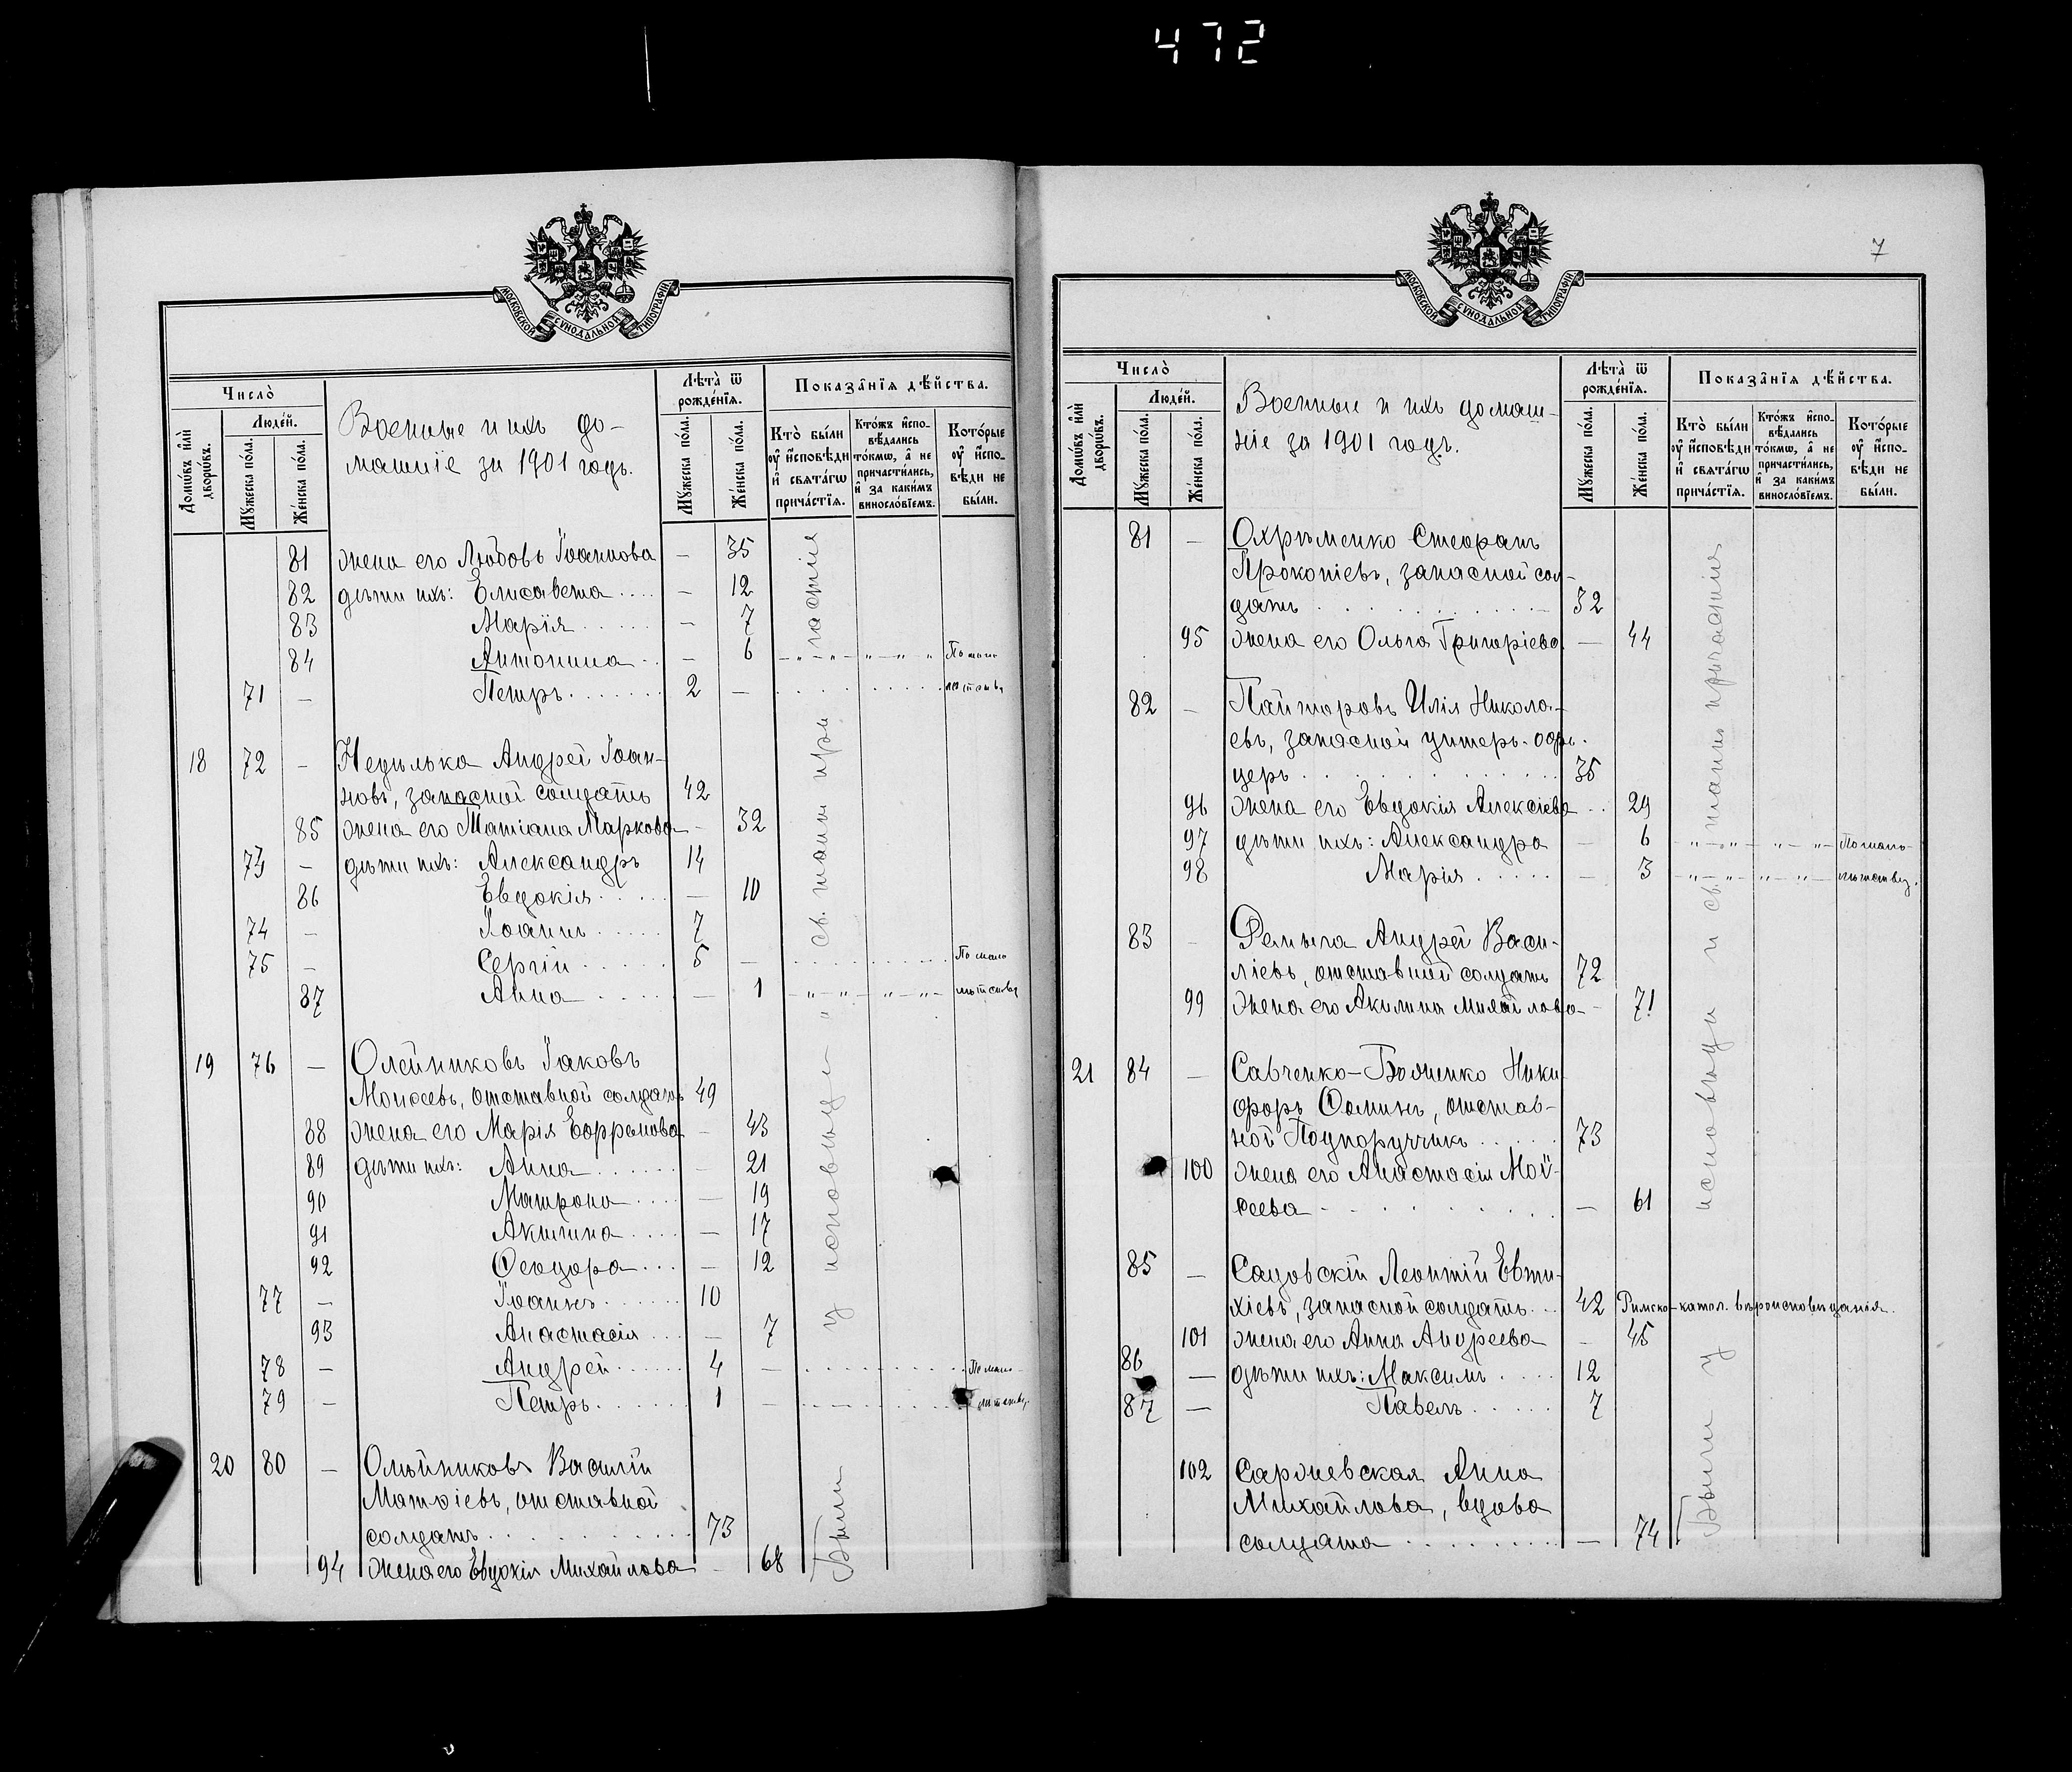 472
МОСКОВСКОЙ СѴНОДАЛЬНОЙ ТИПОГРАФІИ
Число̀
Домѡ́въ и҆лѝ дворѡ́въ.
Люде́й.
Мꙋ́жеска по́ла.
Же́нска по́ла.
Военные и ихъ до-
машніе за 1901 годъ.
Лѣта̀ ѿ рожде́нїѧ.
Мꙋ́жеска по́ла.
Же́нска по́ла.
Показа̑нїѧ дѣ́йства.
Кто̀ бы́ли оу҆ и҆сповѣ́ди и҆ свѧта́гѡ прича́стїѧ.
Кто́жъ и҆спо-вѣ́дались то́кмѡ, а҆ не причасти́лись, и҆ за каки́мъ винослóвїемъ.
Кото́рые оу҆ и҆спо-вѣ́ди не бы́ли.
81 жена его Любовь Іоаннова — 35
82 дѣти ихъ: Елисавета — 12
83 Марія — 7
84 Антонина — 6 По мало-
71 — Петръ 2 — лѣтству
18 72 — Недилька Андрей Іоан-
новъ, запасной солдатъ 42
85 жена его Татіана Маркова — 32
73 — дѣти ихъ: Александръ 14
86 Евдокія — 10
74 — Іоаннъ 7
75 — Сергій 5 — По мало
87 Анна — 1 лѣтству
19 76 — Олейниковъ Іаковъ
Моисеевъ, отставной солдатъ 49
88 жена его Марія Ефремова — 43
89 дѣти ихъ: Анна — 21
90 Матрона — 19
91 Акилина — 17
92 Ѳеодора — 12
77 — Іоаннъ 10
93 Анастасія — 7
78 — Андрей 4 — По мало-
79 — Петръ 1 — лѣтству
20 80 — Олѣйниковъ Василій
Матѳіевъ, отставной
солдатъ 73
94 жена его Евдокія Михайлова — 68
Были у исповѣди и св. таинъ причастія
7
МОСКОВСКОЙ СѴНОДАЛЬНОЙ ТИПОГРАФІИ
Число̀
Домѡ́въ и҆лѝ дворѡ́въ.
Люде́й.
Мꙋ́жеска по́ла.
Же́нска по́ла.
Военные и ихъ домаш-
ніе за 1901 годъ.
Лѣта̀ ѿ рожде́нїѧ.
Мꙋ́жеска по́ла.
Же́нска по́ла.
Показа̑нїѧ дѣ́йства.
Кто̀ бы́ли оу҆ и҆сповѣ́ди и҆ свѧта́гѡ прича́стїѧ.
Кто́жъ и҆спо-вѣ́дались то́кмѡ, а҆ не причасти́лись, и҆ за каки́мъ винослóвїемъ.
Кото́рые оу҆ и҆спо-вѣ́ди не бы́ли.
81 — Охрѣменко Стефанъ
Прокопіевъ, запасной сол-
датъ 32
95 жена его Ольга Григоріева — 44
82 — Пайторовъ Илія Никола-
евъ, запасной унтеръ-офи-
церъ 35
96 жена его Евдокія Алексіева 29
97 дѣти ихъ: Александра — 6 По мало-
98 Марія — 3 лѣтству.
83 — Андрей Васи-
ліевъ, отставной солдатъ 72
99 жена его Акилина Михайлова — 71
21 84 — Савченко-Боженко Ники-
форъ Ѳоминъ, отстав-
ной Подпоручикъ 73
100 жена его Анастасія Мои-
сеева — 61
85 — Садовскій Леонтій Евти-
хіевъ, запасной солдатъ 42 Римско-катол. вѣроисповѣданія.
101 жена его Анна Андреева — 45
86 — дѣти ихъ: Максимъ 12
87 — Павелъ 7
102 Сарочевская Анна
Михайлова, вдова
солдата — 74
Были у исповѣди и св. таинъ причастія